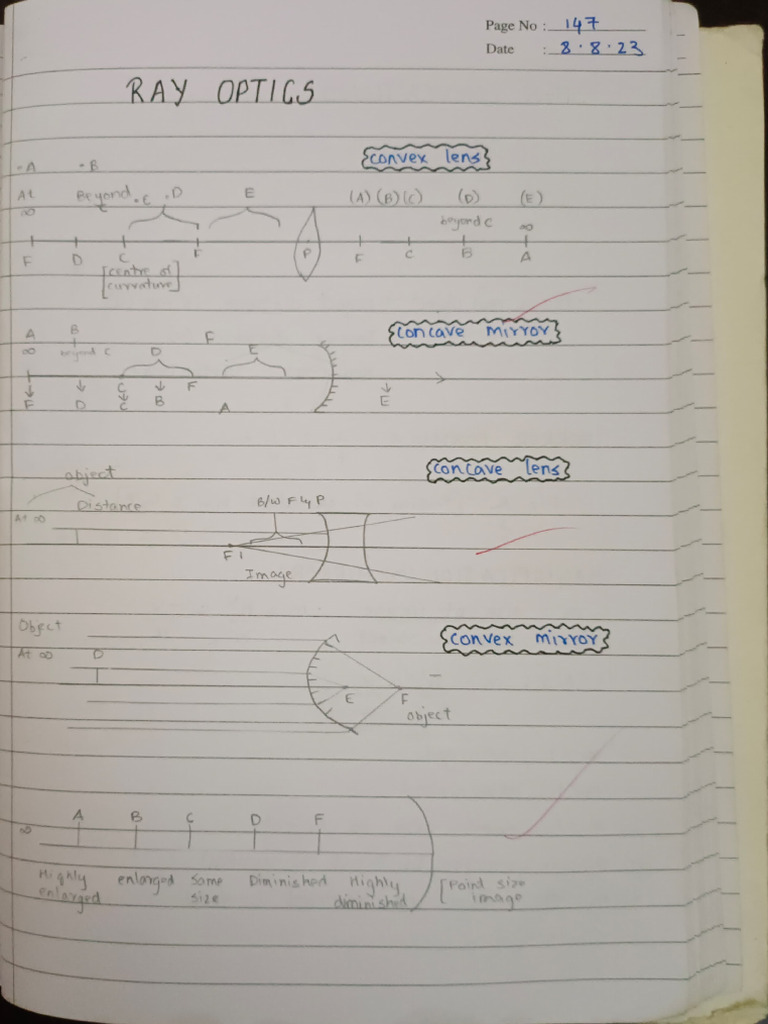 Page No : 147
Date : 8.8.23
RAY OPTICS
convex lens
.A .B
At Beyond .C .D E (A) (B) (C) (D) (E)
∞ C beyond C ∞
F D C F P F C B A
[centre of curvature]
concave mirror
A B F
∞ beyond C D E
C F
F D C B A E
concave lens
object
Distance B/W F & P
At ∞
F
Image
Object convex mirror
At ∞ D
E F
object
A B C D F
∞
Highly enlarged enlarged Same size Diminished Highly diminished [Point size image